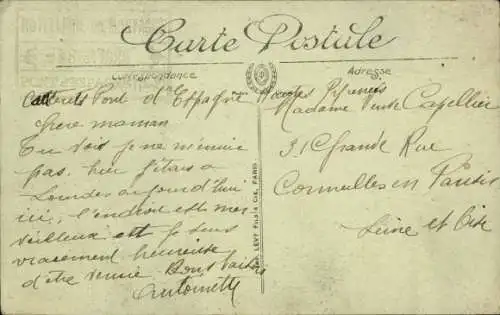 Carte Postale
Correspondance
Adresse
Cauterets Pont d'Espagne Hautes Pyrénées
Chere maman
Tu vois je ne m'ennuie
pas, hier j'étais a
Lourdes aujourd'hui
ici, l'endroit est mer
veilleux et je suis
vraiment heureuse
d'être venue Bons baisers
Antoinette
Madame Capellier
31 Grande Rue
Cormeilles en Parisis
Seine et Oise
LEVY Fils & Cie, PARIS